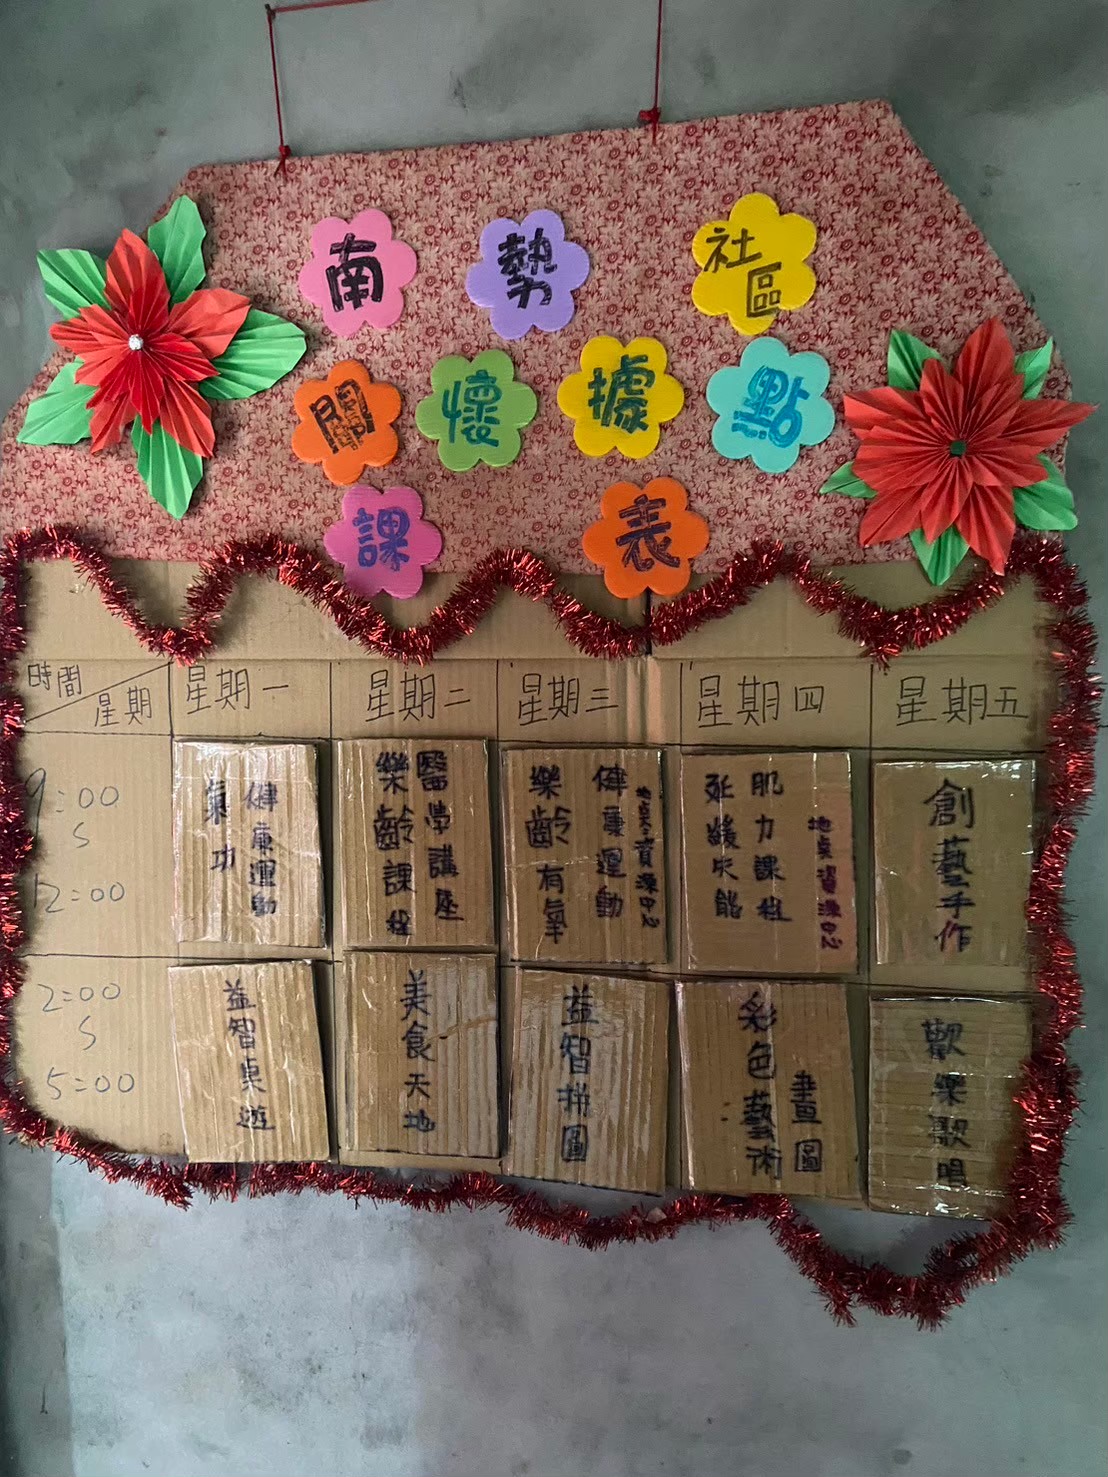 南勢社區
關懷據點
課表
時間
星期
星期一
星期二
星期三
星期四
星期五
9:00
S
12:00
健康運動
氣功
醫學講座
樂齡課程
地點:資源中心
健康運動
樂齡有氧
地點資源中心
肌力課程
延緩失能
創藝手作
2:00
S
5:00
益智桌遊
美食天地
益智拼圖
彩色藝術
畫圖
歡樂歌唱